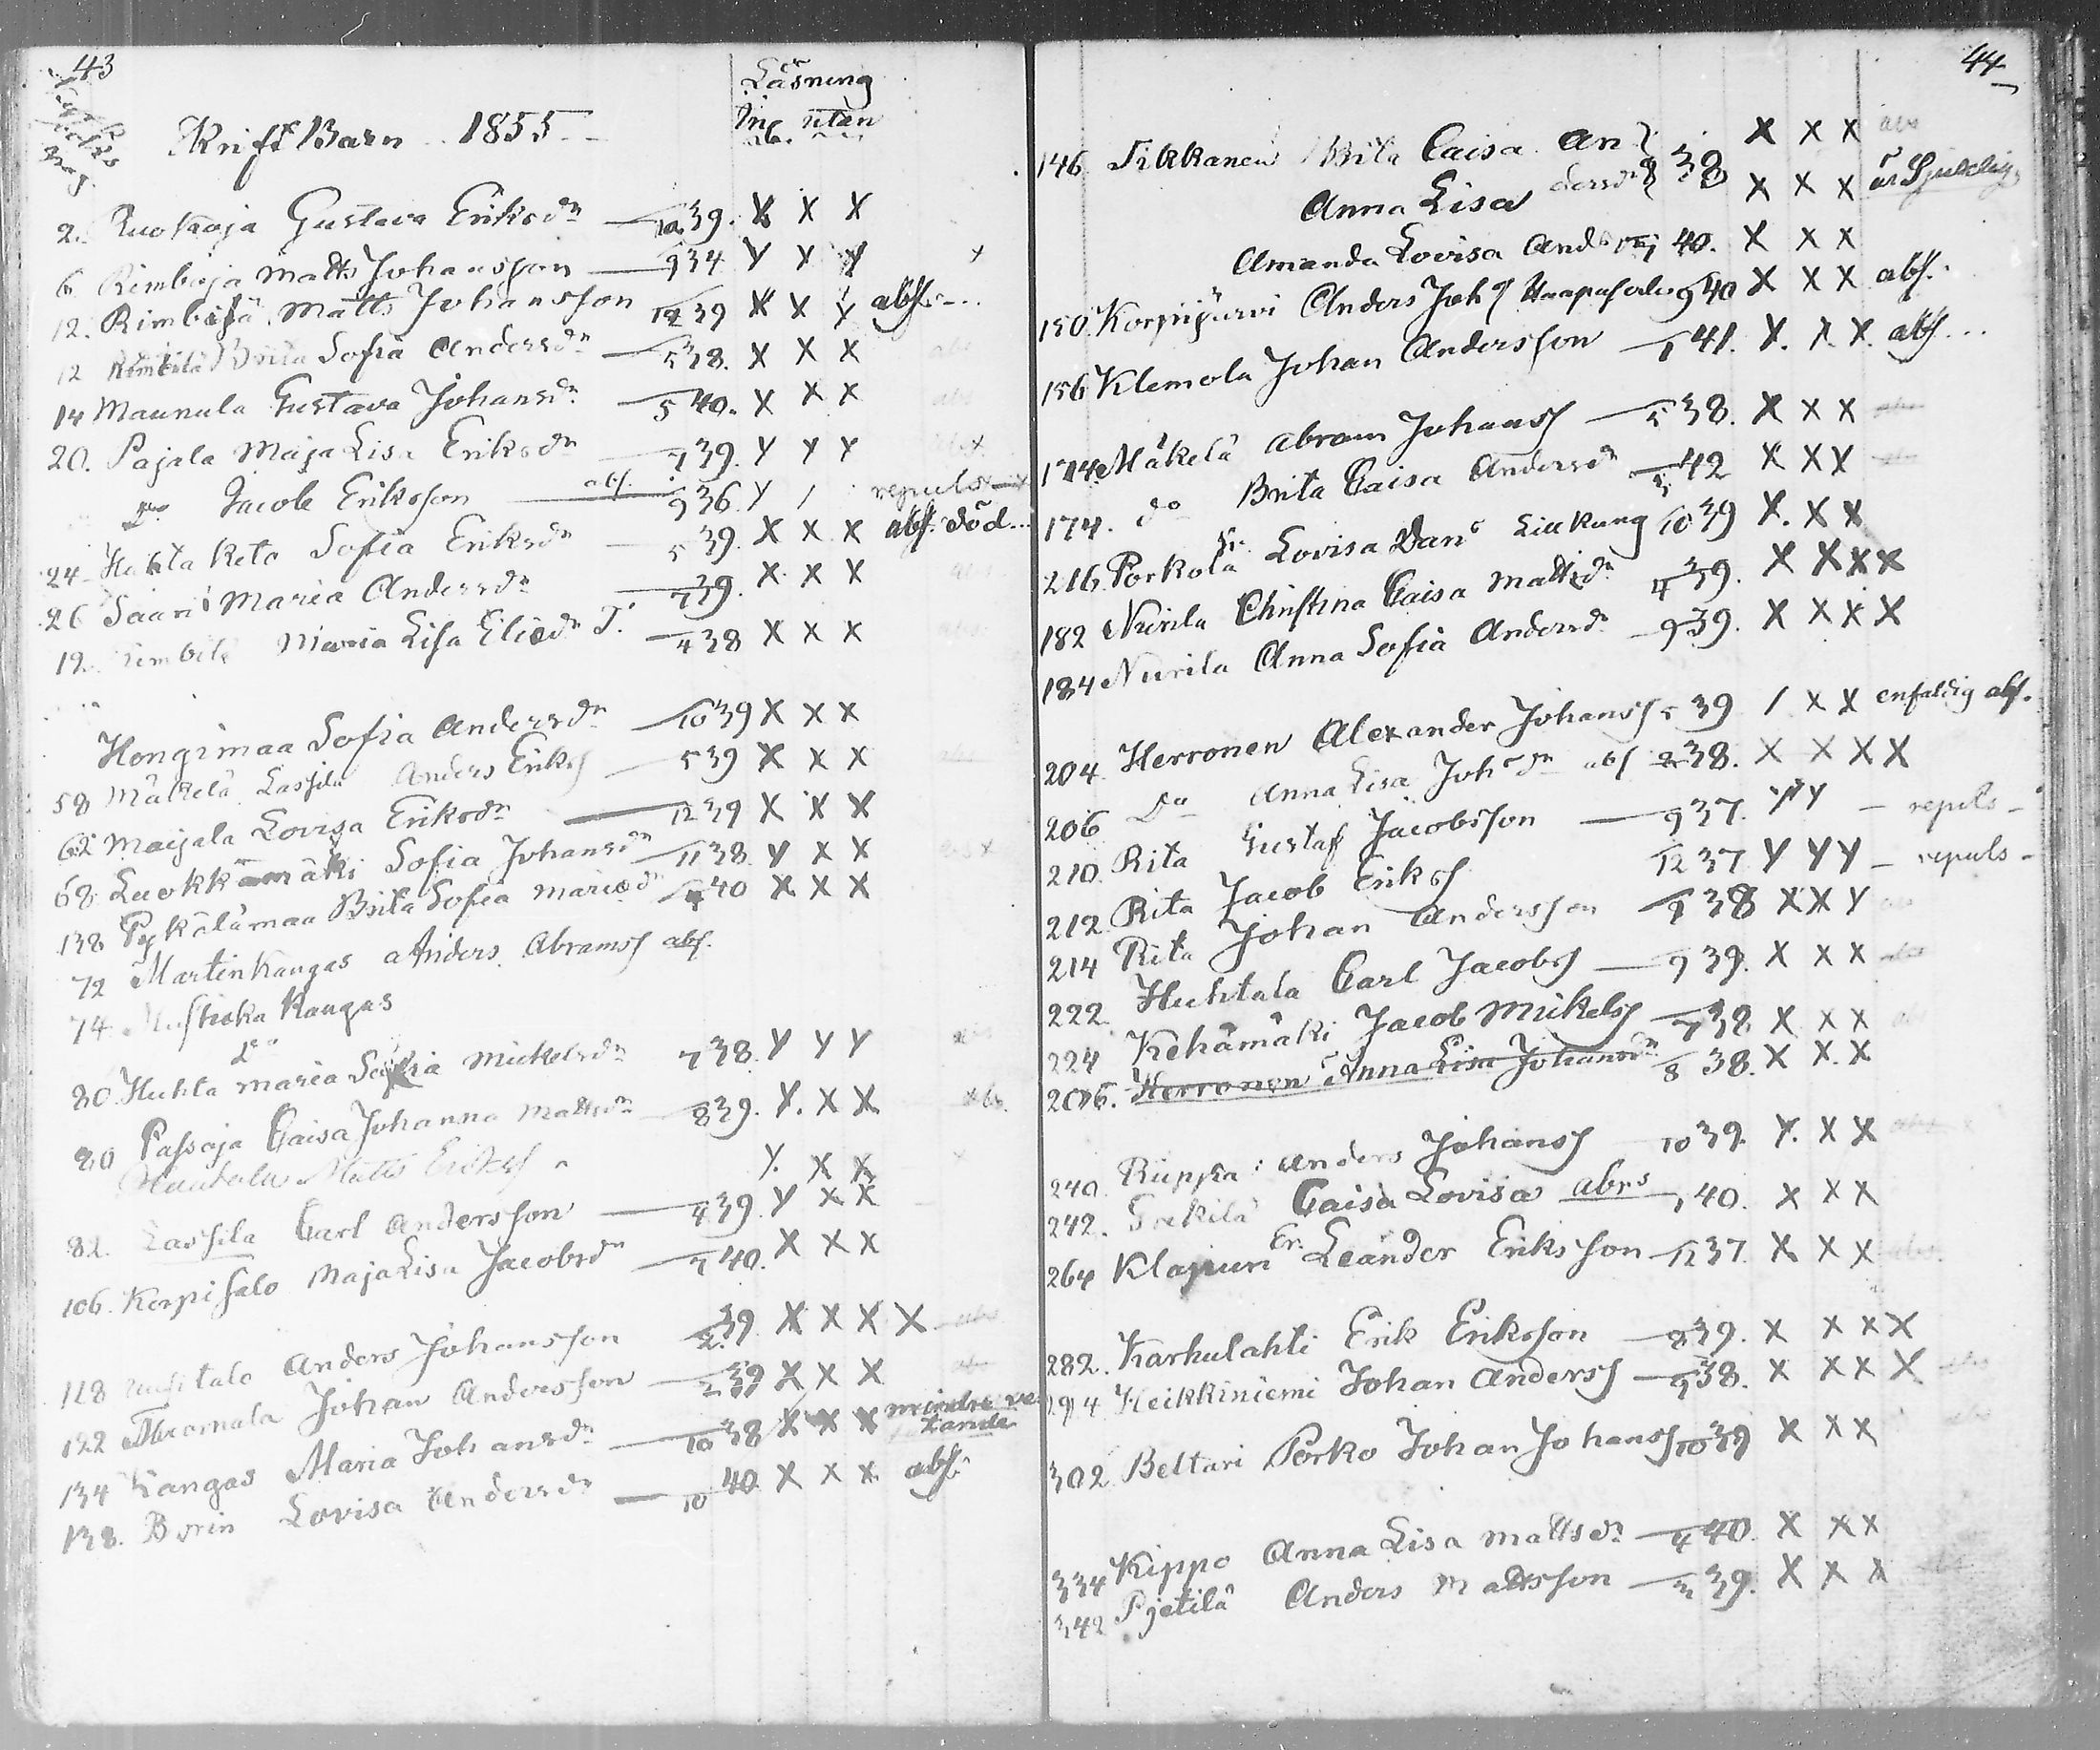 43
Läsning
in utan
Skrift Barn 1855
2. Ruohoja Gustava Eriksdr 10 39. X X X
6 Rimbioja Matts Johansson 9 34 Y X Y X
12. Rimbilä Matts Johansson 12 39 X X Y abs.
12 Rimbilä Brita Sofia Andersdr 5 38. X X X
14 Maunula Gustava Johansdr 5 40. X X X
20. Pajala Maja Lisa Eriksdr 7 39. Y Y Y
Do Jacob Eriksson abs. 9 36. Y / repuls
24 Huhta Keto Sofia Eriksdr 5 39. X X X abs. död
26 Saari Maria Andersdr 7 39. X X X
12. Rimbilä Maria Lisa Eliedr 4 38 X X X
Hongimaa Sofia Andersdr 10 39 X X X
58 Mäkelä Lassila Anders Eriks 5 39 X X X
62 Maijala Lovisa Eriksdr 12 39 X X X
68 Luokkamäki Sofia Johansdr 11 38. Y X X
138 Pykälämaa Brita Sofia Mariædr 4 40 X X X
72 Martinkangas Anders Abrams abs.
74 Mustioka Kangas
do
80. Huhta Maria Sofia Mickelsdr 7 38. Y Y Y
80 Passoja Caisa Johanna Mattsdr 8 39. Y. X X abs.
Matts Y. X X
82. Lassila Carl Andersson 4 39. Y X X
106. Korpisalo Maja Lisa Jacobsdr 7 40. X X X
118 Anders Johansson 2 39 X X X X abs
122 Johan Andersson 2 39 X X X
134 Kangas Maria Johansdr 10 38 X X X mindre ve
tande
138. Borin Lovisa Andersdr 10 40 X X X abs.
44
146 Tikkanen Brita Caisa An X X X abs
dersdr 8 38
Anna Lisa X X X är Sjuklig
Amanda Lovisa Ands 40. X X X
150. Korpijärvi Anders Joh Haapasalo 9 40 X X X abs.
156 Klemola Johan Andersson 1 41. X. X. X. abs.
174 Mäkelä Abram Johans 5 38. X X X
174. do Brita Caisa Andersdr 5 42 X X X
216. Porkola Lovisa Dans Liukung 10 39 X. X X
182 Niirila Christina Caisa Mattsdr 4 39. X X X X
184 Niirila Anna Sofia Andersdr 9 39. X X X X
204 Herronen Alexander Johans 5 39 / X X enfaldig abs.
206 Do Anna Lisa Johsdr abs 38. X X X X
210. Rita Gustaf Jacobsson 9 37. Y Y – repuls –
212 Rita Jacob Eriks 12 37. Y Y Y – repuls –
214 Rita Johan Andersson 9 38 X X Y
222 Huhtala Carl Jacobs 9 39. X X X
224 Kehämäki Jacob Mickels 7 38 X X X
206. Herronen Anna Lisa Johansdr 8 38. X X. X
240. Ruppa Anders Johans 10 39. Y. X X
242. Caisa Lovisa Abrs 1 40. X X X
264 Klapuri Er. Leander Eriksson 12 37. X X X
282. Karhulahti Erik Eriksson 8 39. X X X X
294 Heikkiniemi Johan Anders 9 38. X X X X
302 Beltari Porko Johan Johans 10 39 X X X
334 Kippo Anna Lisa Mattsdr 4 40. X X X
342 Pjetilä Anders Mattsson 3 39. X X X